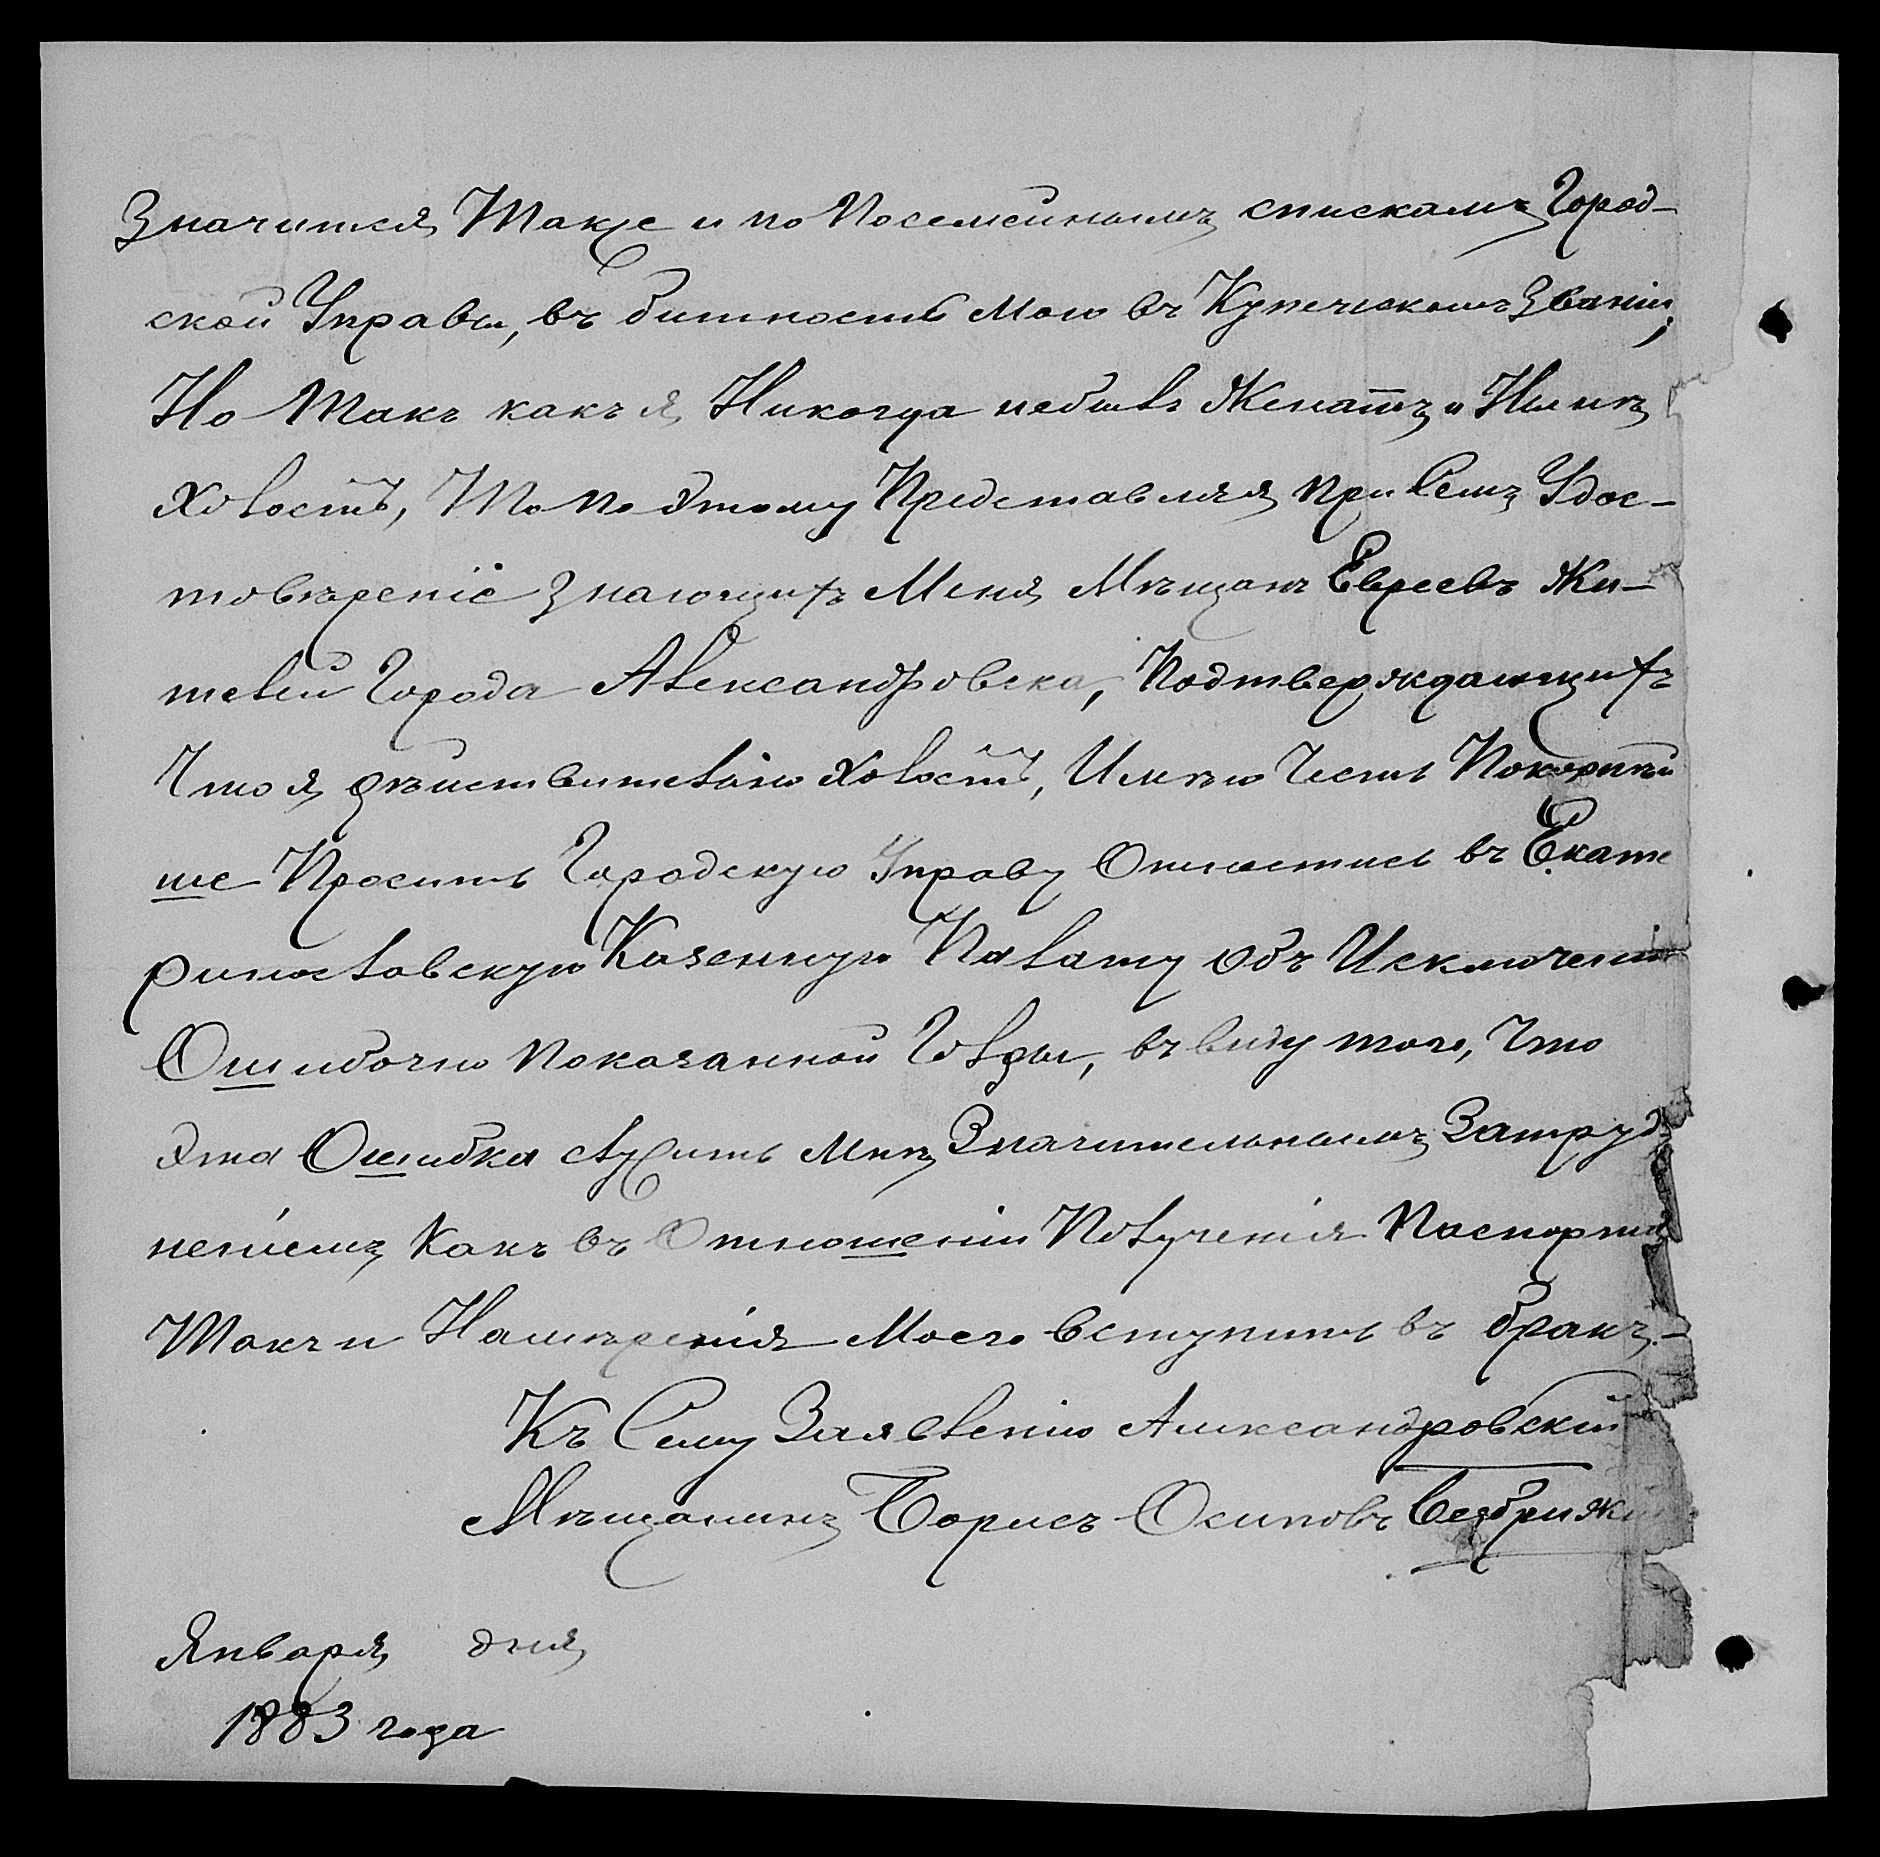 Значится, Также и по Посемейнымъ спискамъ Город-
ской Управы, въ битность Мою въ Купеческомъ Званіи,
Но Такъ какъ я, Никогда небылъ Женатъ и Нынѣ
Холостъ, То По Этому Представляя при Семъ Удос-
товѣреніе Знающихъ Меня, Мѣщанъ Евреевъ Жи-
телей Города Александровска, Подтверждающихъ
Что я, дѣйствительно Холостъ, Имѣю Честь Покорнѣй
ше Просить Городскую Управу Отнестись въ Екате
ринославскую Казенную Палату объ Исключеніи
Ошибочно Показанной Голды, въ виду того, Что
Эта Ошибка служить Мнѣ, Значительнымъ Затруд
неніемъ Какъ въ Отношеніи Полученія Паспорта
Такъ и Намѣренія Моего Вступить въ бракъ.-
Къ Сему Заявленію Александровскій
Мѣщанинъ Борисъ Осиповъ
Января, дня,
1883 года